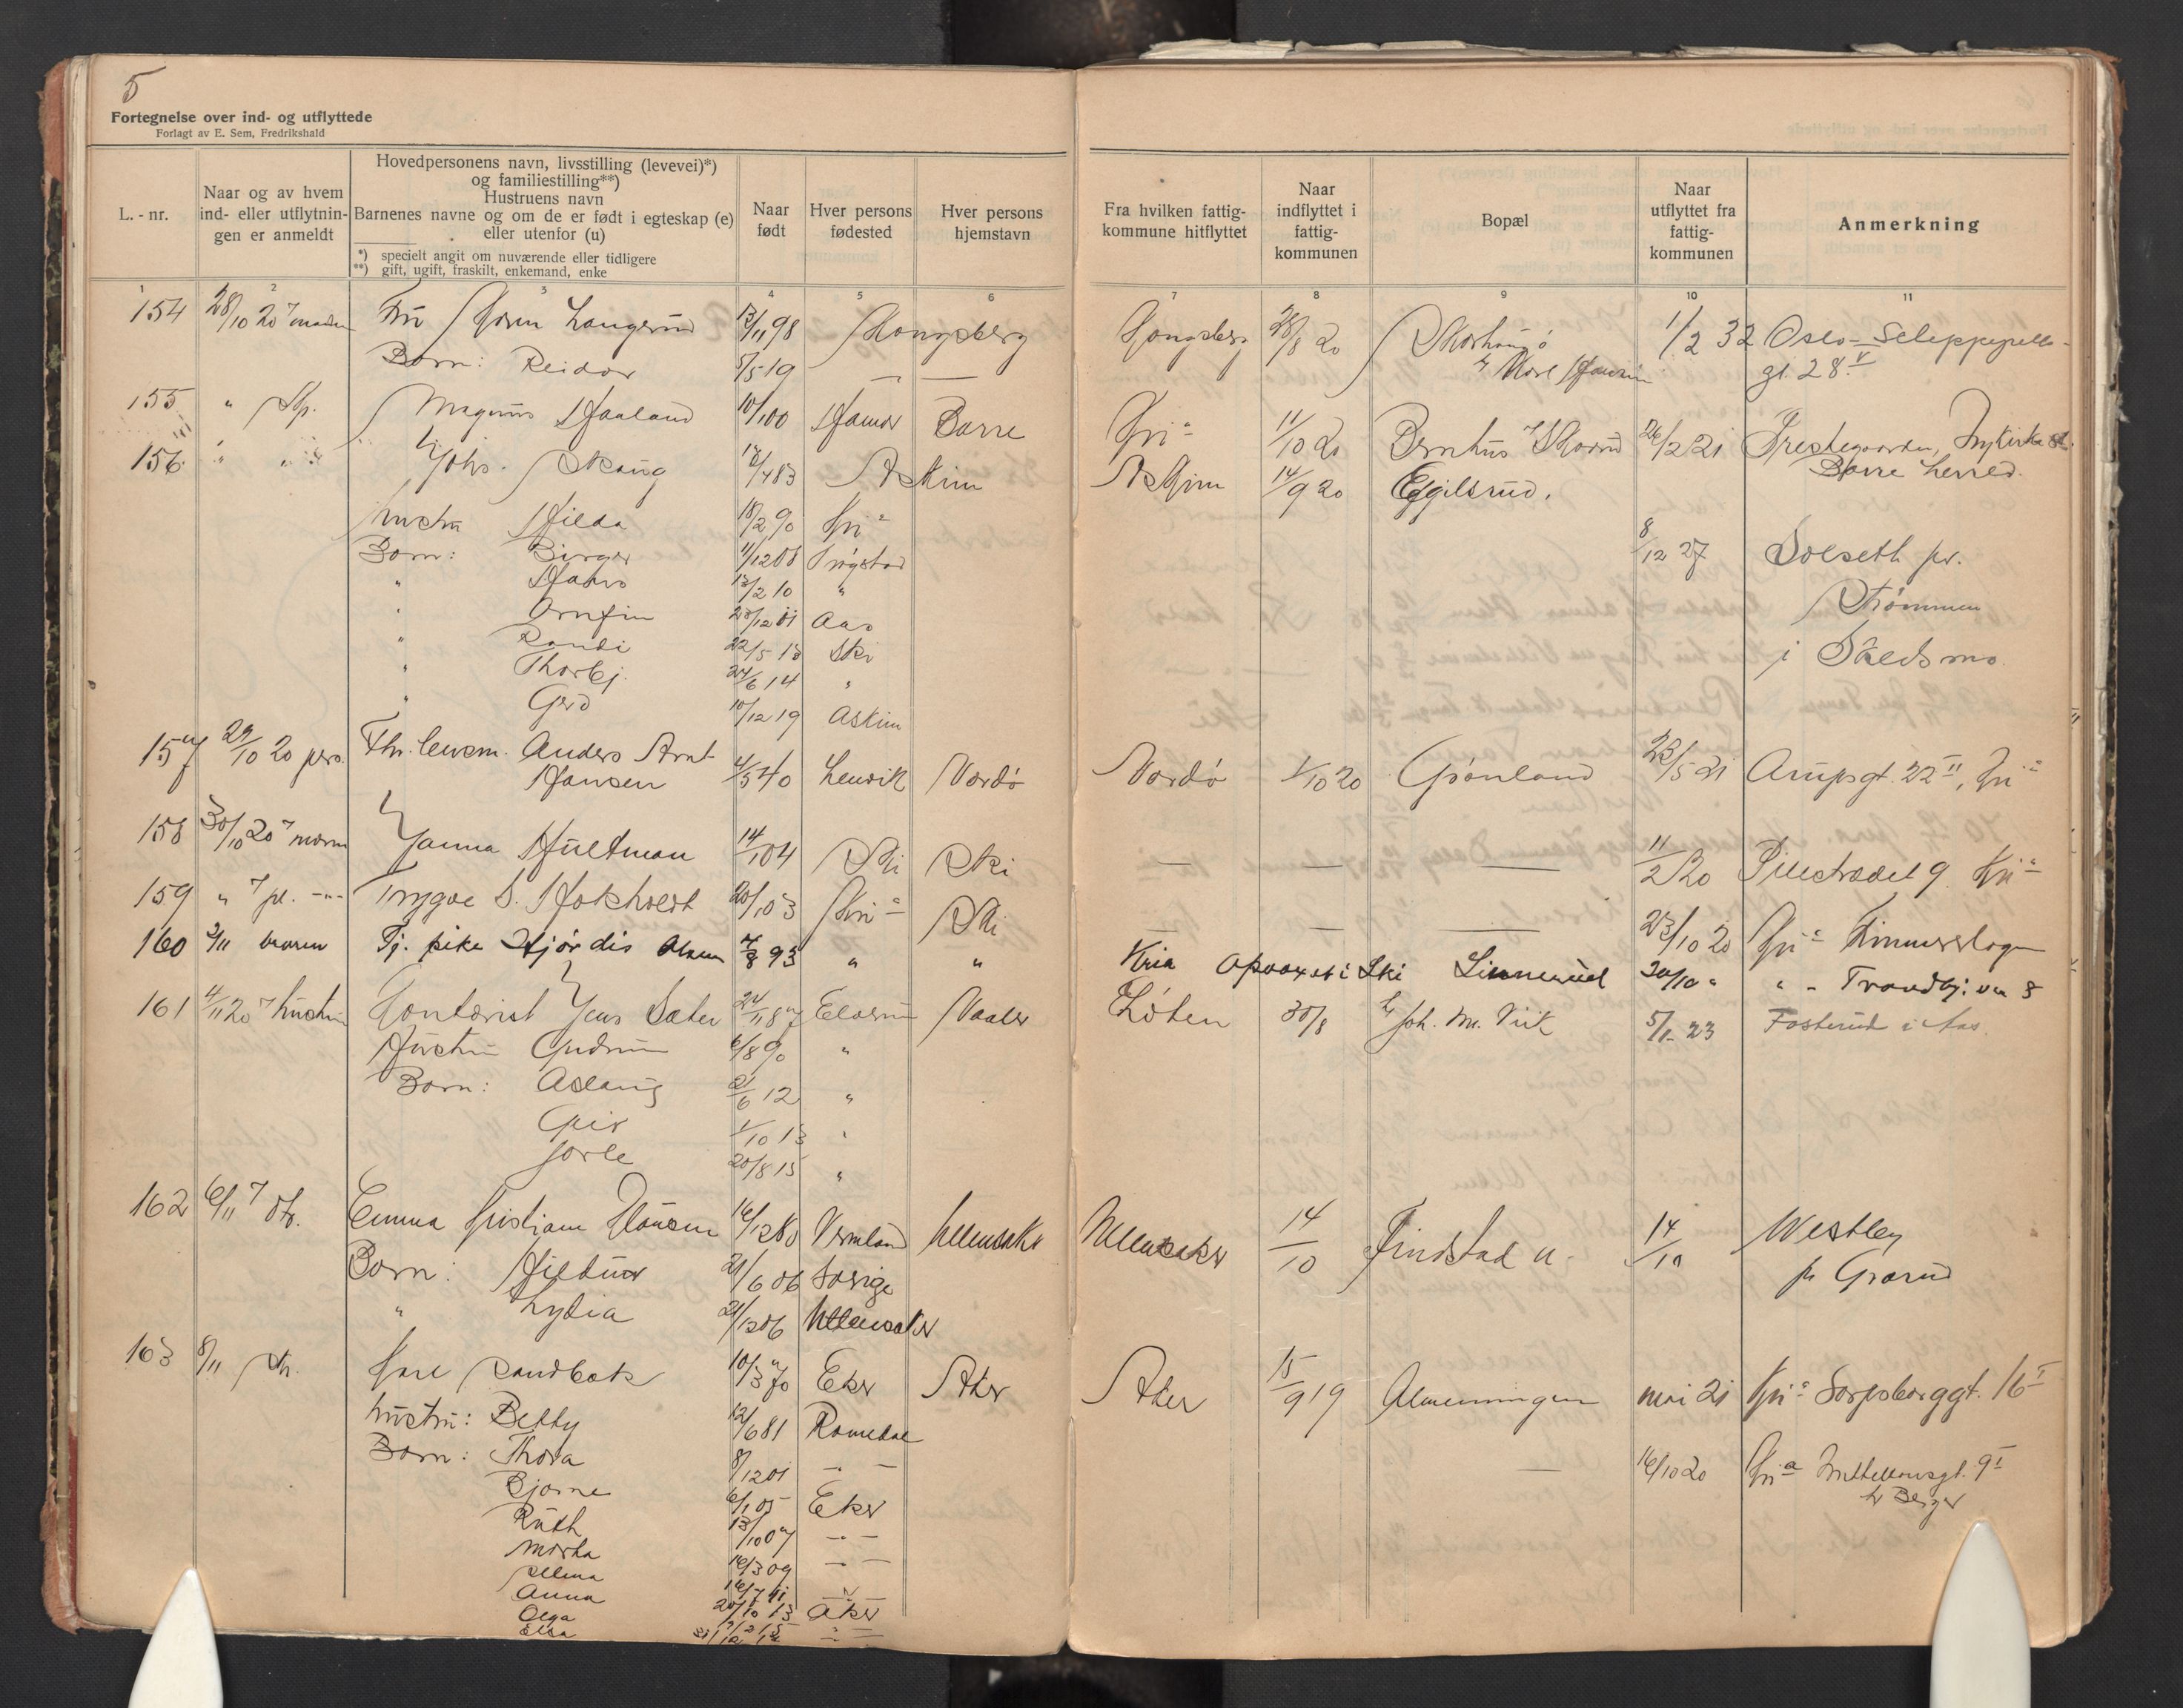 5
Fortegnelse over ind- og utflyttede
Forlagt av E. Sem, Fredrikshald
L. - nr.
Naar og av hvem
ind- eller utflytnin-
gen er anmeldt
Hovedpersonens navn, livsstilling (levevei)*)
og familiestilling**)
Hustruens navn
Barnenes navne og om de er født i egteskap (e)
eller utenfor (u)
*) specielt angit om nuværende eller tidligere
**) gift, ugift, fraskilt, enkemand, enke
Naar
født
Hver persons
fødested
Hver persons
hjemstavn
Fra hvilken fattig-
kommune hitflyttet
Naar
indflyttet i
fattig-
kommunen
Bopæl
Naar
utflyttet fra
fattig-
kommunen
Anmerkning
1 2 3 4 5 6 7 8 9 10 11
154 28/10 20 Fru Karen Langerud 13/11 98 Kongsberg Kongsberg 28/8 20 1/2 32 Oslo
Barn: Reidar 5/5 19 — — gt. 28 V
155 " Magnus Haaland 10/1 00 Hamar Borre Kri a 11/10 20 26/2 21 Prestegaarden, Nykirke st.
Borre herred.
156 " " Johs. Skaug 483 Askim Askim 14/9 20 Eggilsrud.
hustru Hilda 18/2 90 Kri a
Barn: Birger 1/12 08 Trøgstad 8/12 27 Solseth pr.
" Hans 13/2 10 " Strømmen
" Arnfin 11 Aas
" Randi 22/5 13 Ski i Skedsmo.
" Thorbj. 24/6 14 "
" Gerd 10/12 19 Askim
157 29/10 20 pers. Fhv. lensm. Anders Arnt
Hansen 4/5 40 Lenvik Vardø Vardø 1/10 20 Grønland 28/5 21 Arupsgt. 22 II, Kri a
158 30/10 20 Janna Hultman 14/1 04 Ski Ski — — — 11/2 20 Pilestrædet 9. Kri a
159 " Trygve S. Hokholdt 20/1 03 Kri a Ski — — — 23/10 20 Kri a
160 2/11 Tj. pike Hjørdis Olsen 7/8 93 " " Kria Opvokst i Ski Linnerud 30/10 " " -
161 4/11 20 hustru Kontorist Jens Sæter 24/11 87 Elverum Vaaler Løten 30/8 Joh. M. Vik 5/1 23 Fosterud i Aas.
Hustru Gudrun 6/8 90 "
Barn: Aslaug 21/6 12 "
Geir 1/10 13 "
Jorle 20/8 15 "
162 6/11 Emma Kristiane Hansen 16/12 80 Vermland Ullensaker Ullensaker 14/10 Finstad u. 14/10 Westby
Barn: Hildur 21/6 06 Sverige pr Graarud
" Lydia 06 Ullensaker
163 8/11 Karl Sandbæk 10/3 70 Eker Aker Aker 15/9 19 Almenningen mai 21 Kri a Sarpsborggt. 16 I
hustru: Betty 12/6 81 Romedal
Barn: Thora 8/12 01 — " — — 16/10 20 Kri a 9 I
Bjarne 6/1 05 Eker
Ruth 13/10 07 — " —
Marta 16/3 09 — " —
Anna
Olga 13 Aker
Elsa